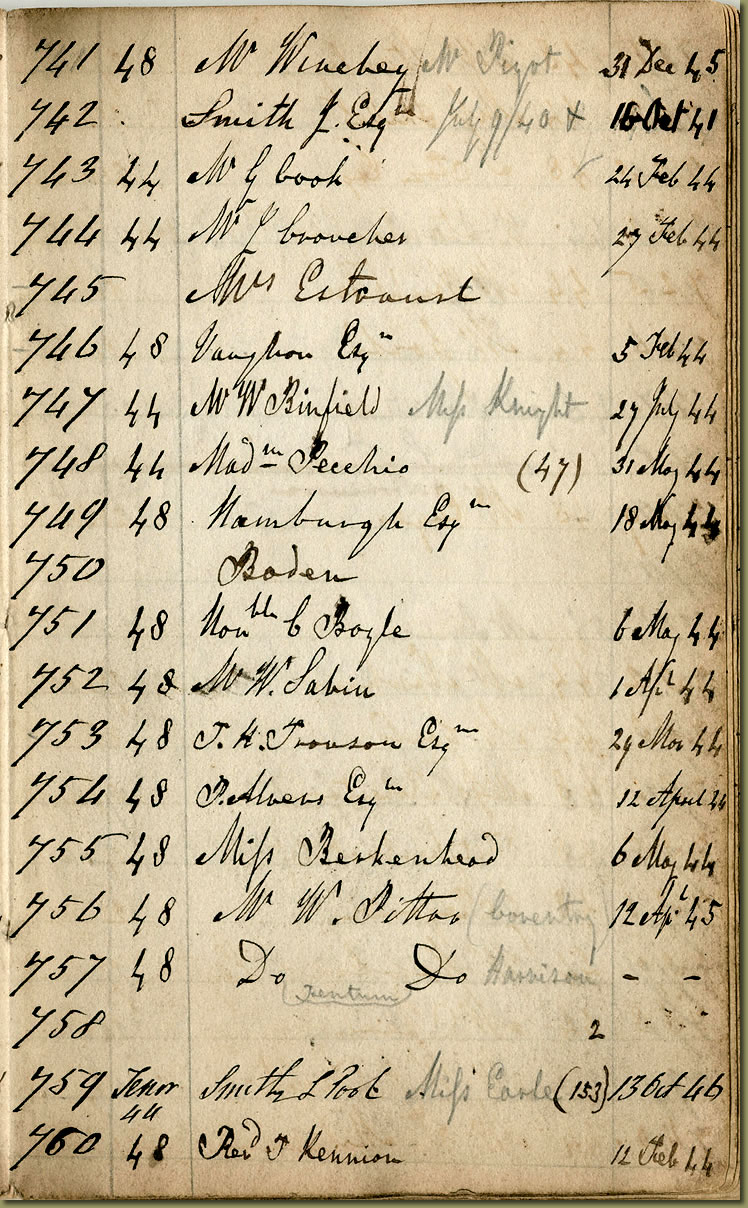 741 48 Mr Winchey Mr Pigot 31 Dec 45
742 Smith J. Esqre July 9/40 + 16 Oct 41
743 44 Mr G Cook 24 Feb 44
744 44 Mr J Croucher 27 Feb 44
745 Mrs
746 48 Vaughon Esqre 5 Feb 44
747 44 Mr W Binfield Miss Knight 27 July 44
748 44 Madm Pecchio (47) 31 May 44
749 48 Hamburgh Esqre 18 May 44
750 Boden
751 48 Honble C Boyle 6 May 44
752 48 Mr W. Sabin 1 Apl 44
753 48 T. H. Trouson Esqre 29 Mar 44
754 48 Esqre 12 April 44
755 48 Miss Berkenhead 6 May 44
756 48 Mr W. (Coventry) 12 Apl 45
757 48 Do Do Harrison – –
758 2
759 Tenor 44 Smith L Pool Miss (153) 13 Oct 46
760 48 Revd T Kennion 12 Feb 44